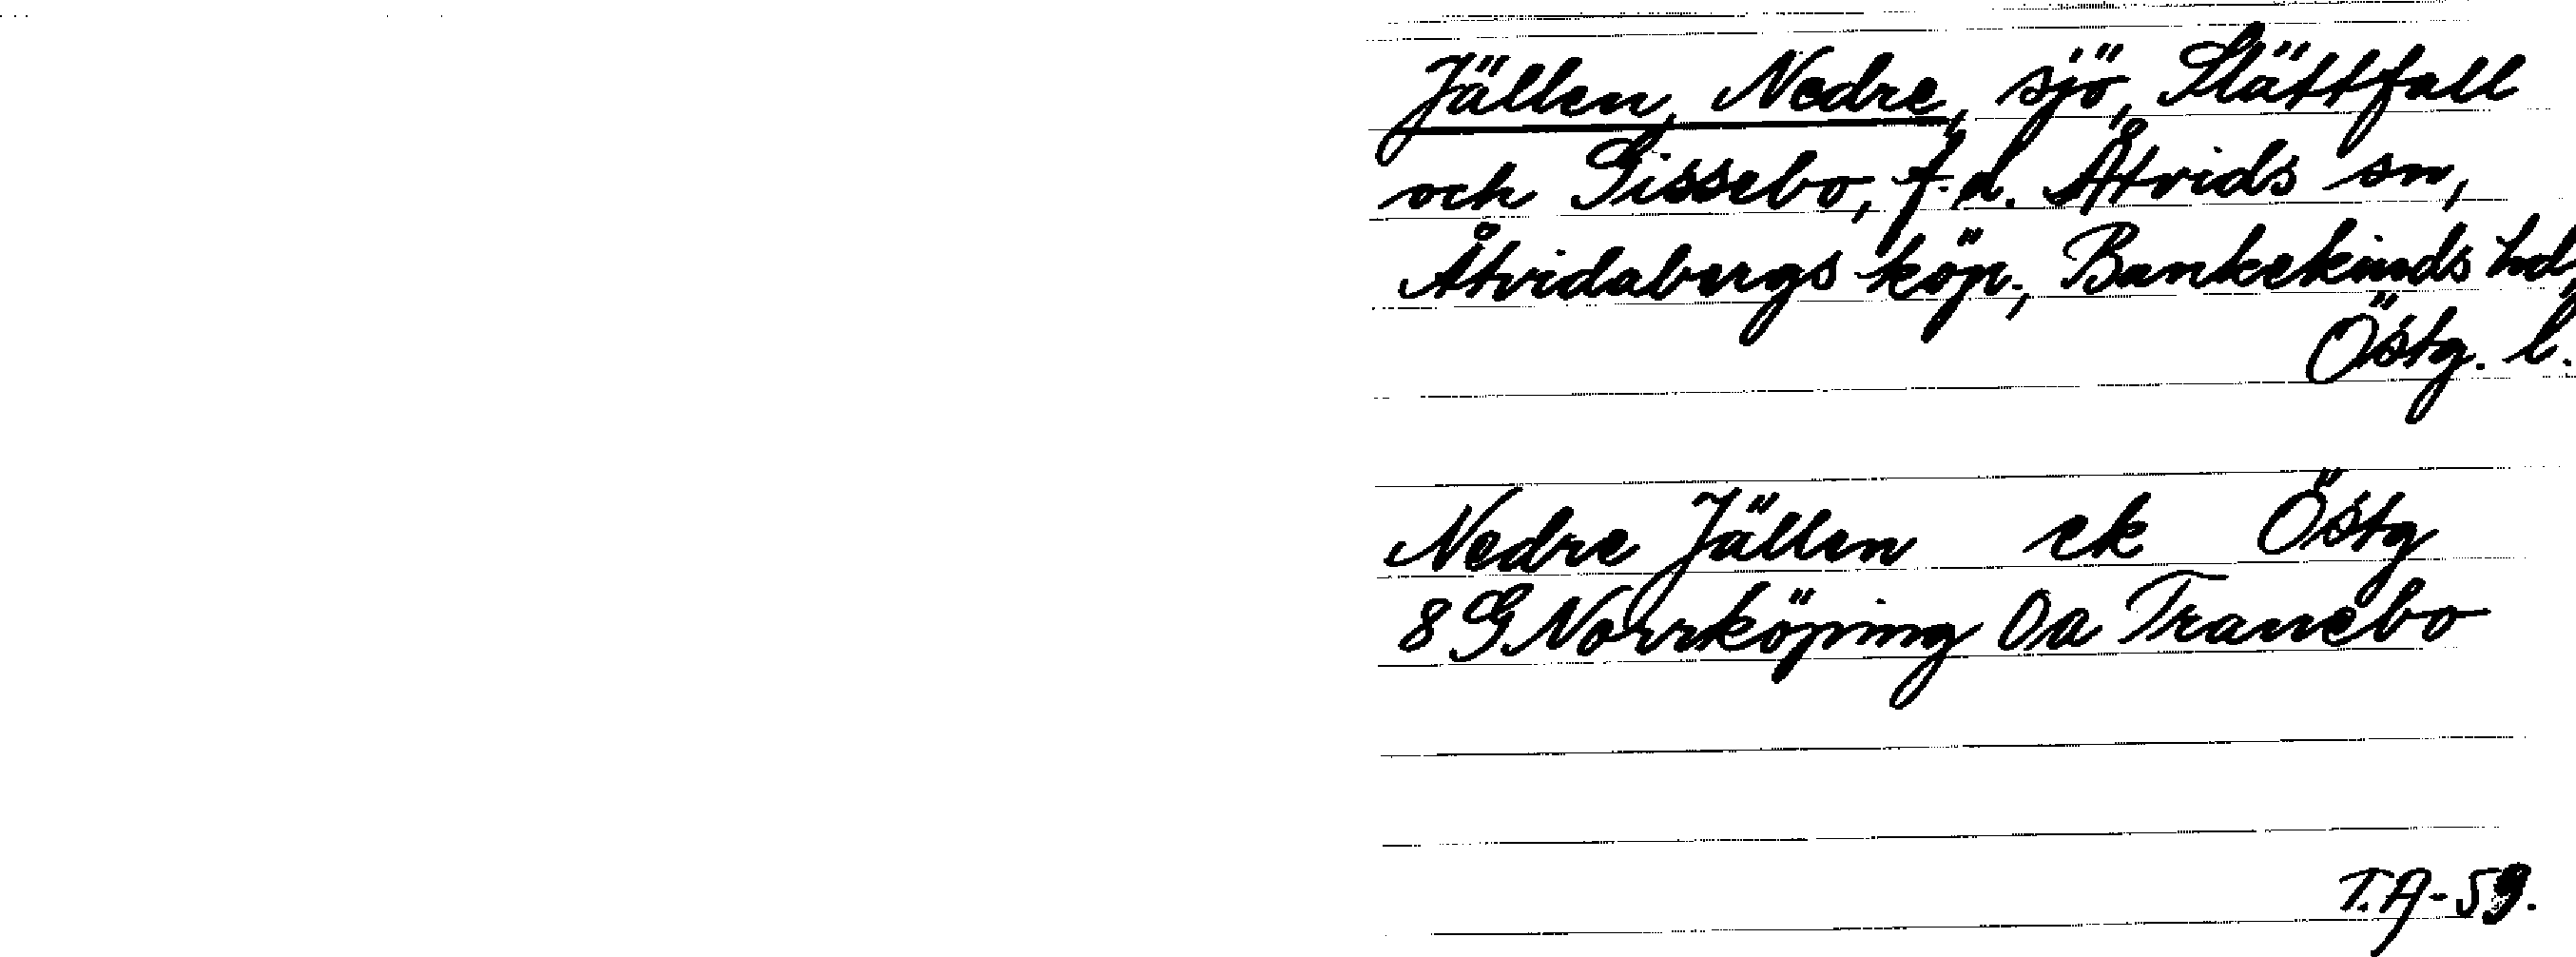 Jällen, Nedre, sjö, Slättfall
och Gissebo, f.d. Åtvids sn,
Åtvidabergs köp., Bankekinds hd,
Östg. l.
Nedre Jällen ek Östg
8 G Norrköping 0a Tranebo
T.A-59.